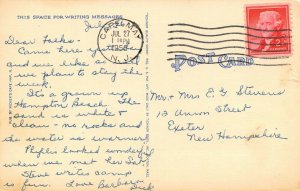 THIS SPACE FOR WRITING MESSAGES
July
Dear Folks-
Came here yesterday
and we like so well
we plan to stay the
week.
It's a grown up
Hampton Beach. The
sand is white &
clean - no rocks and
the water is warmer.
Phyliss looked wonderful
when we met her Sat.
Steve writes camp
is fun. Love Barbara
Dick
CAPE MAY
JUL 27
1 PM
1958
N.J.
POST CARD
2¢
Mr. & Mrs. E G Stevens
13 Union Street
Exeter
New Hampshire